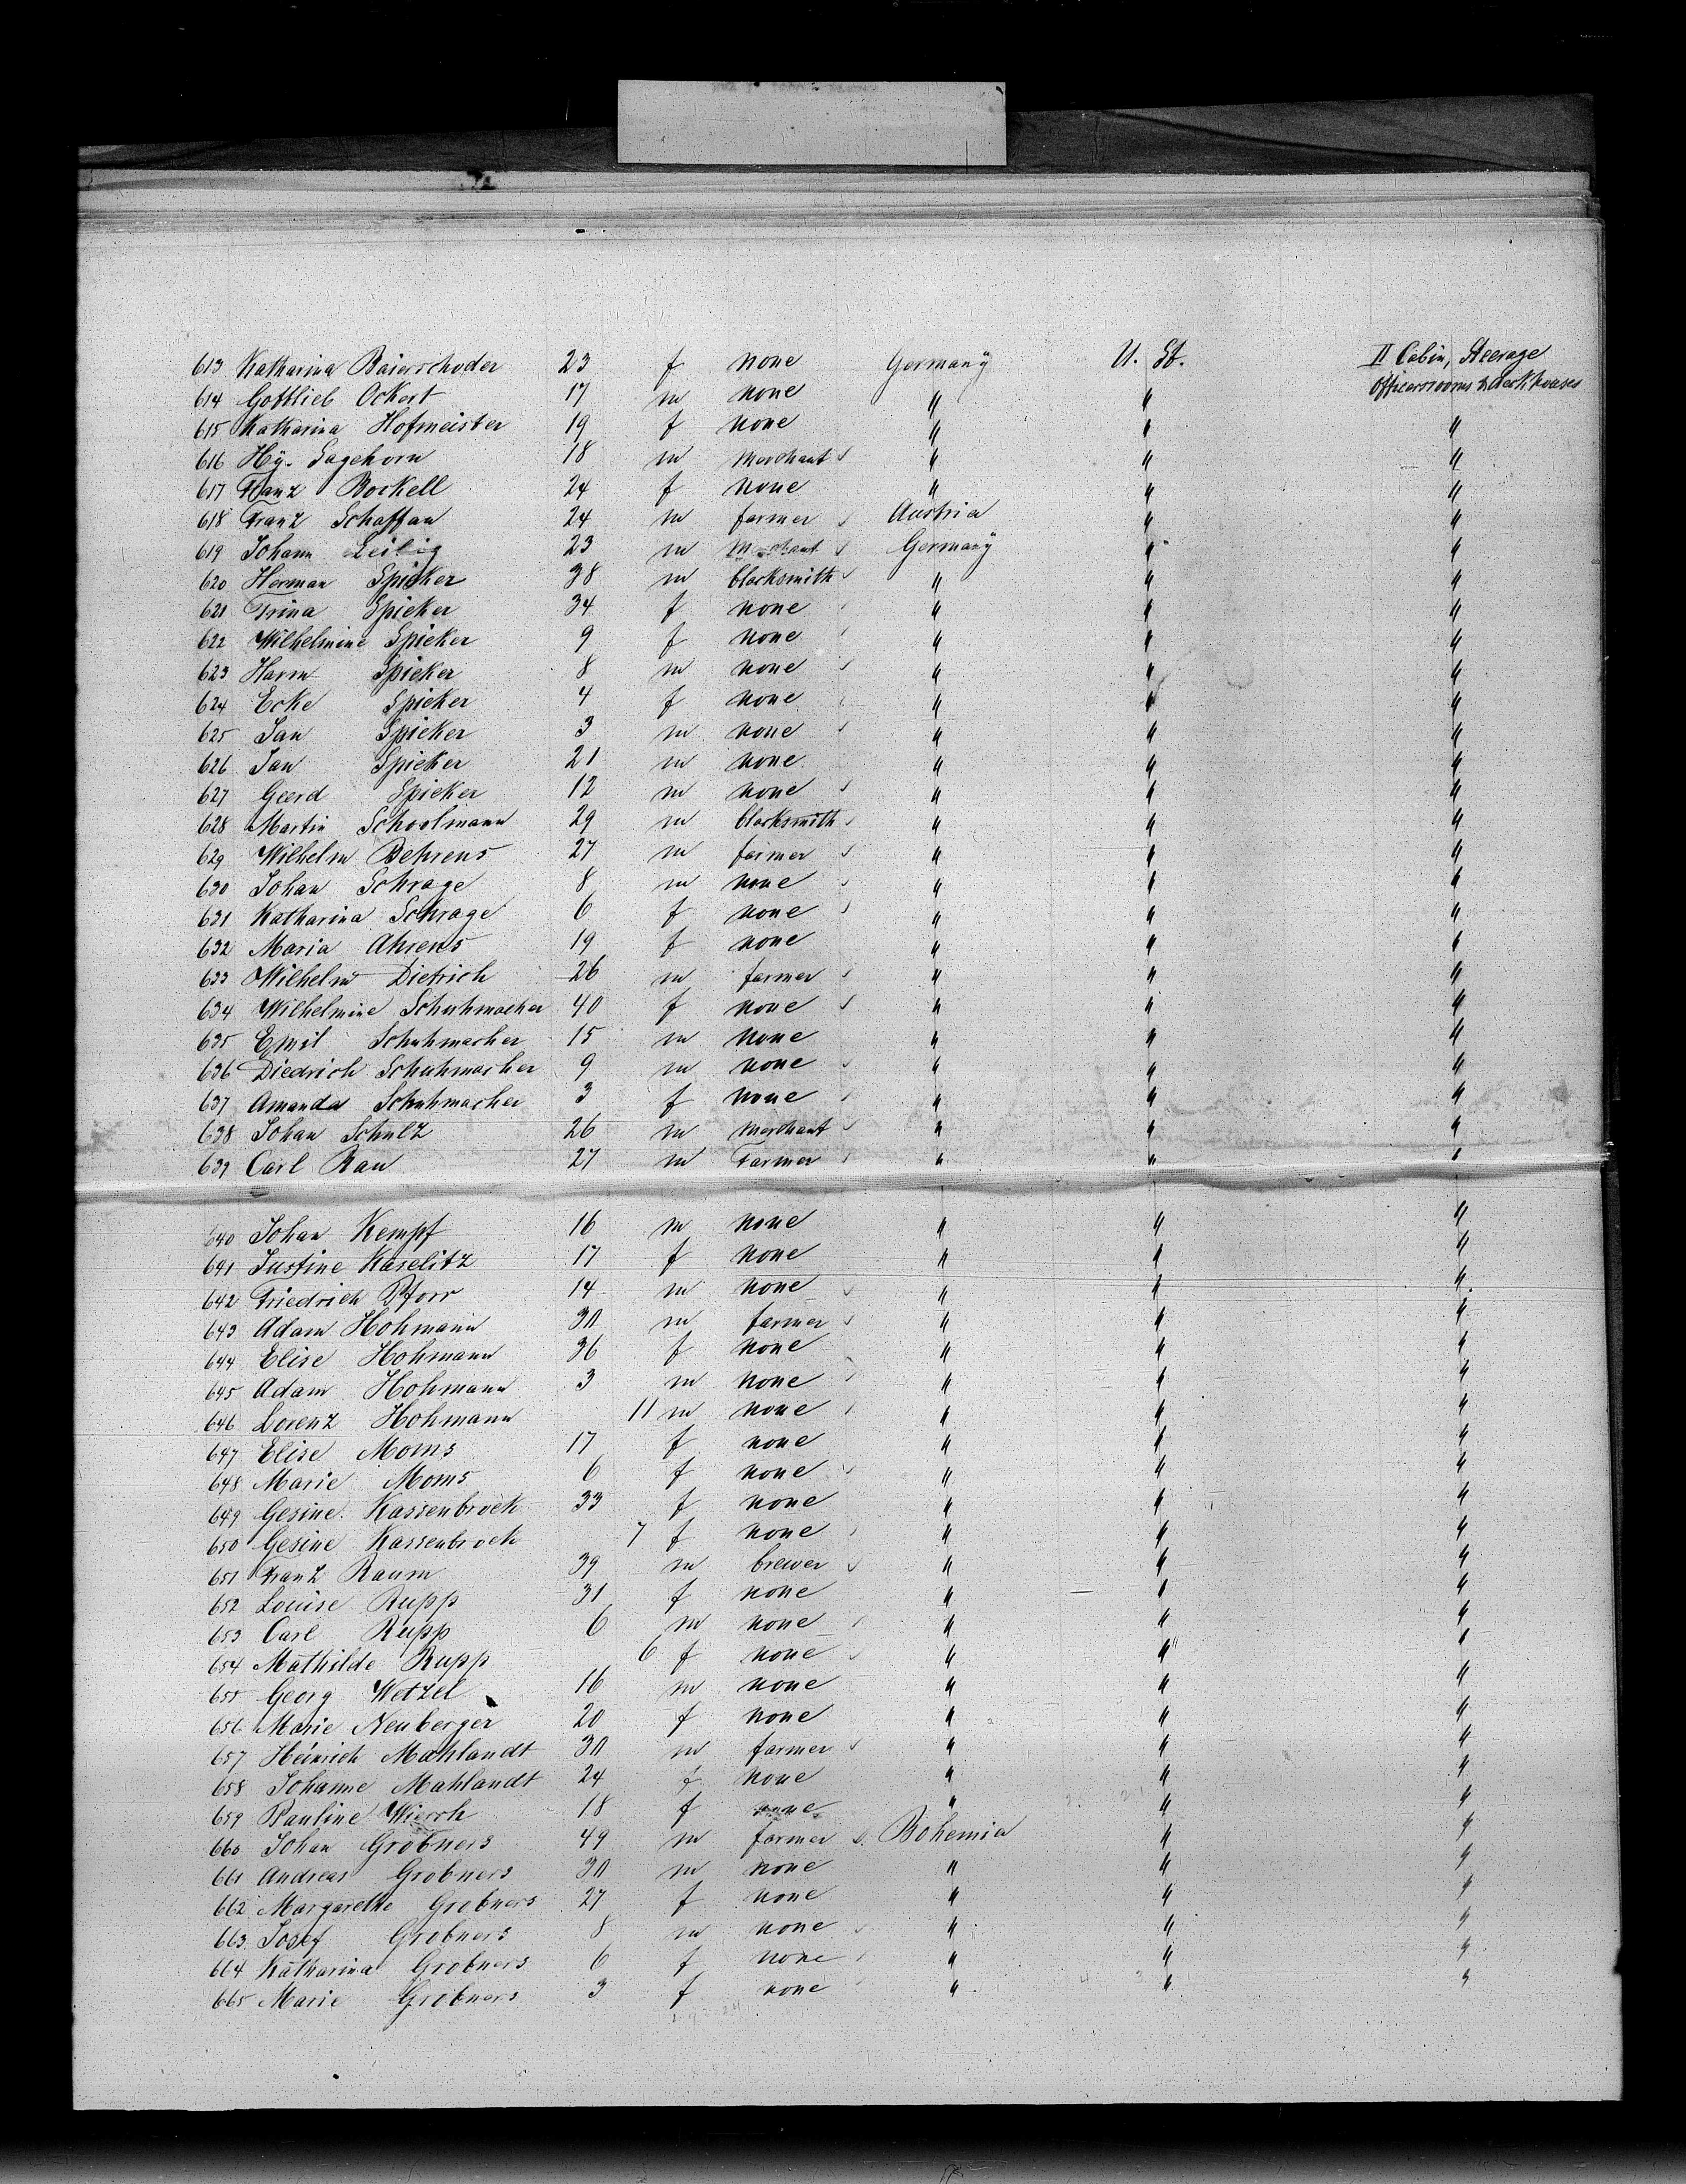 613 Katharina Baierschoder 23 f none Germany U. St. II Cabin, Steerage
614 Gottlieb Ockert 17 m none " " Officersrooms & deckhouses
615 Katharina Hofmeister 19 f none " " "
616 Hy. Sagehorn 18 m merchant " " "
617 Franz Bockell 24 f none " " "
618 Franz Schaffan 24 m farmer Austria " "
619 Johann Leilig 23 m merchant Germany " "
620 Herman Spieker 38 m blacksmith " " "
621 Trina Spieker 34 f none " " "
622 Wilhelmine Spieker 9 f none " " "
623 Harm Spieker 8 m none " " "
624 Ecke Spieker 4 f none " " "
625 Jan Spieker 3 m none " " "
626 Jan Spieker 21 m none " " "
627 Geerd Spieker 12 m none " " "
628 Martin Schoolmann 29 m blacksmith " " "
629 Wilhelm Behrens 27 m farmer " " "
630 Johan Schrage 8 m none " " "
631 Katharina Schrage 6 f none " " "
632 Maria Ahrens 19 f none " " "
633 Wilhelm Dietrich 26 m farmer " " "
634 Wilhelmine Schuhmacher 40 f none " " "
635 Emil Schuhmacher 15 m none " " "
636 Diedrich Schuhmacher 9 m none " " "
637 Amanda Schuhmacher 3 f none " " "
638 Johan Schulz 26 m merchant " " "
639 Carl Rau 27 m Farmer " " "
640 Johan Kempf 16 m none " " "
641 Justine Kaselitz 17 f none " " "
642 Friedrich Pforr 14 m none " " "
643 Adam Hohmann 30 m farmer " " "
644 Elise Hohmann 36 f none " " "
645 Adam Hohmann 3 m none " " "
646 Lorenz Hohmann 11 m none " " "
647 Elise Moms 17 f none " " "
648 Marie Moms 6 f none " " "
649 Gesine Kassenbrock 33 f none " " "
650 Gesine Kassenbrock 7 f none " " "
651 Franz Raum 39 m brewer " " "
652 Louise Rupp 31 f none " " "
653 Carl Rupp 6 m none " " "
654 Mathilde Rupp 6 f none " " "
655 Georg Wetzel 16 m none " " "
656 Marie Neuberger 20 f none " " "
657 Heinrich Mahlandt 30 m farmer " " "
658 Johanne Mahlandt 24 f none " " "
659 Pauline Wiersch 18 f none " " "
660 Johan Grobners 49 m farmer Bohemia " "
661 Andreas Grobners 30 m none " " "
662 Margarethe Grobners 27 f none " " "
663 Josef Grobners 8 m none " " "
664 Katharina Grobners 6 f none " " "
665 Marie Grobners 3 f none " " "